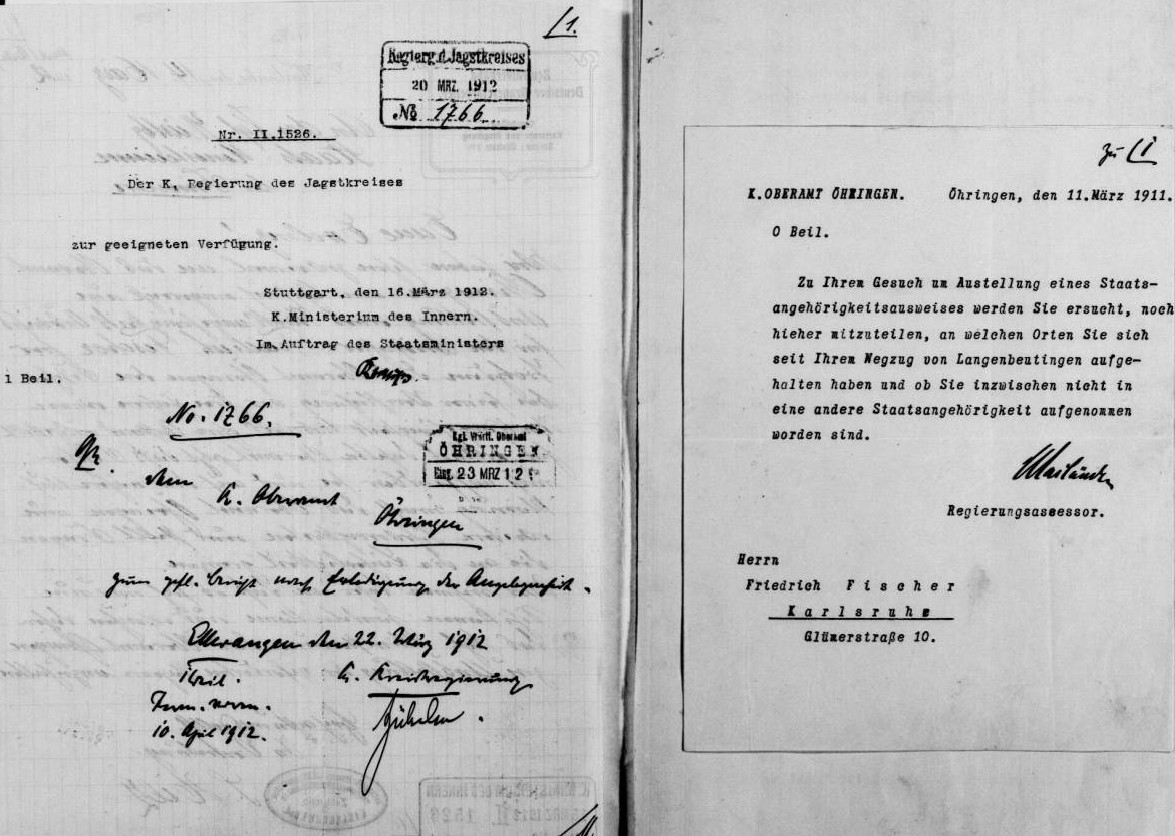 [1.
Regierg.d.Jagstkreises
20 MRZ. 1912
No 1766.
Nr. II.1526.
Der K. Regierung des Jagstkreises
zur geeigneten Verfügung.
Stuttgart, den 16.März 1912.
K.Ministerium des Innern.
Im Auftrag des Staatsministers
1 Beil.
No. 1766.
Dem
K. Oberamt
Öhringen
Kgl. Württ. Oberamt
ÖHRINGEN
Eing. 23 MRZ 12
zum gefl. Bericht nach Erledigung der Angelegenheit.
Ellwangen den 22. März 1912
1 Beil.
K. Kreisregierung
10. April 1912.
zu [1
K.OBERAMT ÖHRINGEN. Öhringen, den 11.März 1911.
0 Beil.
Zu Ihrem Gesuch um Austellung eines Staats-
angehörigkeitsausweises werden Sie ersucht, noch
hieher mitzuteilen, an welchen Orten Sie sich
seit Ihrem Wegzug von Langenbeutingen aufge-
halten haben und ob Sie inzwischen nicht in
eine andere Staatsangehörigkeit aufgenommen
worden sind.
Mailänder
Regierungsassessor.
Herrn
Friedrich Fischer
Karlsruhe
Glümerstraße 10.